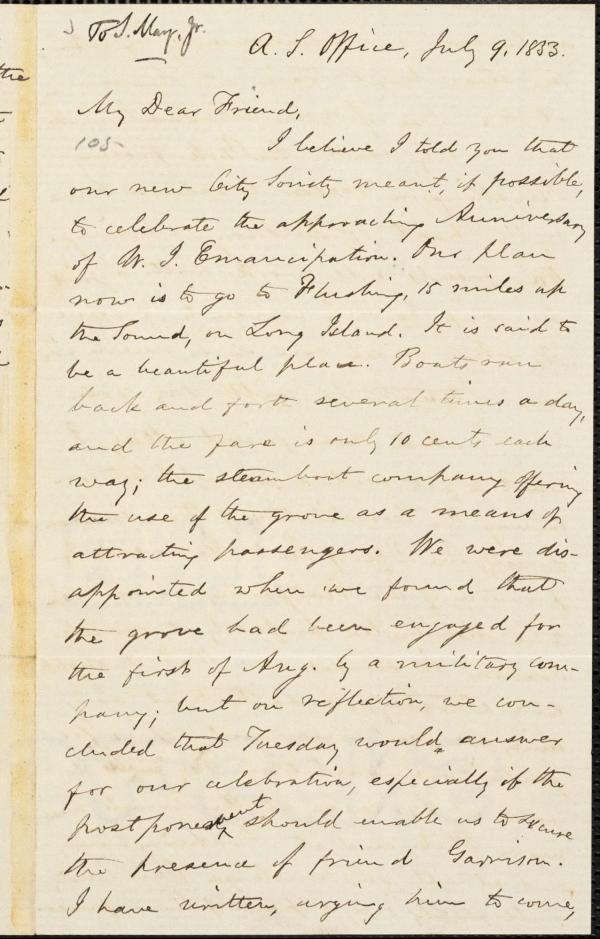 To S. May, Jr.
A. S. Office, July 9, 1853.
My Dear Friend,
105
I believe I told you that
our new City Society meant, if possible,
to celebrate the approaching Anniversary
of W. I. Emancipation. Our plan
now is to go to Flushing, 15 miles up
the Sound, on Long Island. It is said to
be a beautiful place. Boats run
back and forth several times a day,
and the fare is only 10 cents each
way; the steamboat company offering
the use of the grove as a means of
attracting passengers. We were dis-
appointed when we found that
the grove had been engaged for
the first of Aug. by a military com-
pany; but on reflection, we con-
cluded that Tuesday would answer
for our celebration, especially if the
postponement should enable us to secure
the presence of friend Garrison.
I have written, urging him to come,
the